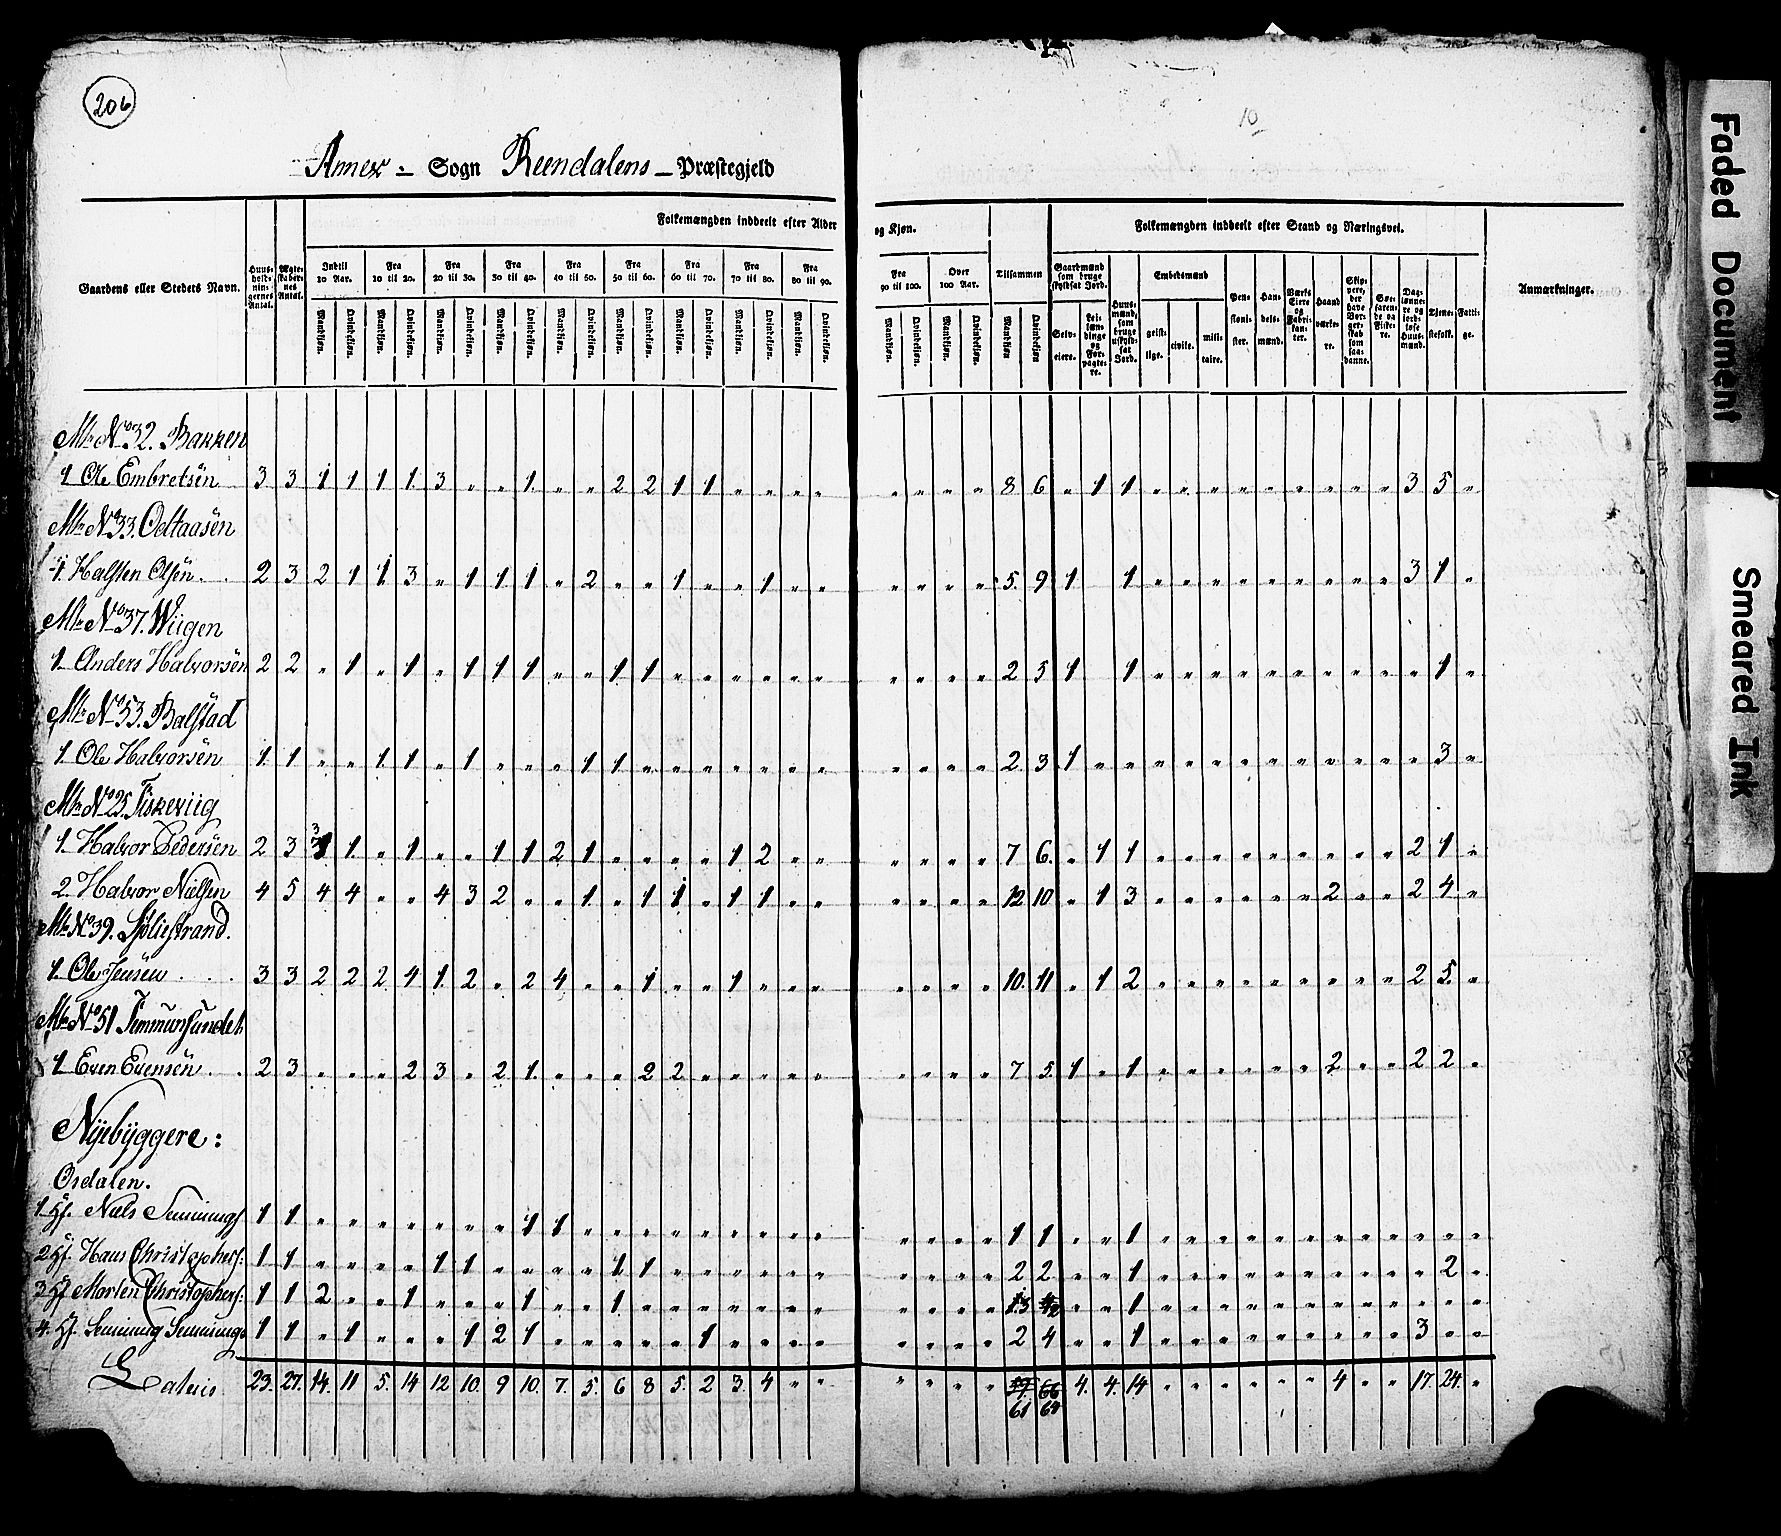 206
10
Annex - Sogn Reendalens - Præstegjeld
Gaardens eller Stedets Navn.
Huus-holdningernes Antal.
Ægteskabernes Antal.
Folkemængden inddeelt efter Alder og Kjøn.
Indtil 10 Aar. Fra 10 til 20. Fra 20 til 30. Fra 30 til 40. Fra 40 til 50. Fra 50 til 60. Fra 60 til 70. Fra 70 til 80. Fra 80 til 90. Fra 90 til 100. Over 100 Aar. Tilsammen
Mandkjøn. Qvindekjøn. Mandkjøn. Qvindekjøn. Mandkjøn. Qvindekjøn. Mandkjøn. Qvindekjøn. Mandkjøn. Qvindekjøn. Mandkjøn. Qvindekjøn. Mandkjøn. Qvindekjøn. Mandkjøn. Qvindekjøn. Mandkjøn. Qvindekjøn. Mandkjøn. Qvindekjøn. Mandkjøn. Qvindekjøn. Mandkjøn Qvindekjøn
Folkemængden inddeelt efter Stand og Næringsvei.
Gaardmænd som bruge skyldsat Jord.
Selveiere.
Leilændinge og Forpagtere.
Huusmænd, som bruge uskyldsat Jord.
Embedsmænd
geistlige. civile. militaire.
Pensionister.
Handelsmænd.
Værks Eiere og Fabrikanter.
Haandværkere.
Skippere, der have Borgerskab som saadanne.
Søefarende og Fiskere.
Daglønnere og jordløse Huusmænd.
Tjenestefolk.
Fattige.
Anmærkninger.
Mtr. No 32. Bakken
1 Ole Embretsen 3 3 1 1 1 1 3 „ „ 1. „ „ 2 2 1 1 „ „ „ „ „ „ „ „ 8 6 „ 1 1 „ „ „ „ „ „ „ „ „ 3 5 „
Mtr. No 33. Oeltaasen
1. Halsten Olsen. 2 3 2 1 1 3 „ 1 1 1 „ 2 „ „ 1 „ „ 1 „ „ „ „ „ „ 5. 9 1 1 „ „ „ „ „ „ „ „ „ 3 1 „
Mtr. No 37. Wiigen
1 Anders Halvorsen 2 2 „ 1 „ 1 „ 1 1 1 „ „ 1 1 „ „ „ „ „ „ „ „ „ „ 2 5 1 1 „ „ „ „ „ „ „ „ „ „ 1 „
Mtr. No 53. Balstad
1. Ole Halvorsen 1. 1 „ „ 1 1 „ 1 „ „ „ 1 1 „ „ „ „ „ „ „ „ „ „ „ 2 3 1 „ „ „ „ „ „ „ „ „ „ „ „ 3 „
Mtr. No 25. Fiskeviig
1. Halvor Pedersen 2 3 3 1. „ 1 „ „ 1 1 2 1 „ „ „ „ 1 2 „ „ „ „ „ „ 7 6. „ 1 1 „ „ „ „ „ „ „ „ „ 2 1 „
2. Halvor Nielsen 4 5 4 4 „ „ 4 3 2 „ „ 1 „ 1 1 „ 1 1 „ „ „ „ „ „ 12 10 „ 1 3 „ „ „ „ „ „ 2 „ „ 2 4 „
Mtr. No 39. Søliestrand.
1. Ole Jensen 3 3 2 2 2 4 1. 2 „ 2 4 „ „ 1 „ „ 1 „ „ „ „ „ „ „ 10. 11 „ 1 2 „ „ „ „ „ „ „ „ „ 2 5. „
Mtr. No 51 Femmunsundet
1 Even Evensen 2 3 „ „ „ 2 3 „ 2 1. „ „ „ 2 2 „ „ „ „ „ „ „ „ „ 7 5. 1 „ 1 „ „ „ „ „ „ 2 „ „ 2 2 „
Nyebyggere:
Osdalen.
1 Hf. Niels Semmings 1 1. „ „ „ „ „ „ „ 1 1 „ „ „ „ „ „ „ „ „ „ „ „ „ 1 1 „ „ 1 „ „ „ „ „ „ „ „ „ „ „ „
2 Hf. Hans Christophers: 1 1 „ „ „ „ 1 1 „ „ „ „ 1 1 „ „ „ „ „ „ „ „ „ „ 2 2 „ „ 1 „ „ „ „ „ „ „ „ „ „ 2 „
3 Hf Morten Christophers: 1 1 2 „ „ 1 „ „ „ 1 „ „ 1 „ „ „ „ „ „ „ „ „ „ „ 3 2 „ „ 1 „ „ „ „ „ „ „ „ „ „ „ „
4. Hf. Semming Semmings 1 1 „ 1 „ „ „ 1 2 1 „ „ „ „ „ 1 „ „ „ „ „ „ „ „ 2 4 „ „ 1 „ „ „ „ „ „ „ „ „ 3 „ „
Lateris 23. 27. 14. 11 5. 14 12 10. 9 10. 7. 5. 6 8 5. 2 3. 4 „ „ „ „ „ „ 66 4. 4. 14 „ „ „ „ „ „ 4 „ „ 17. 24. „
61 64
Faded Document
Smeared Ink